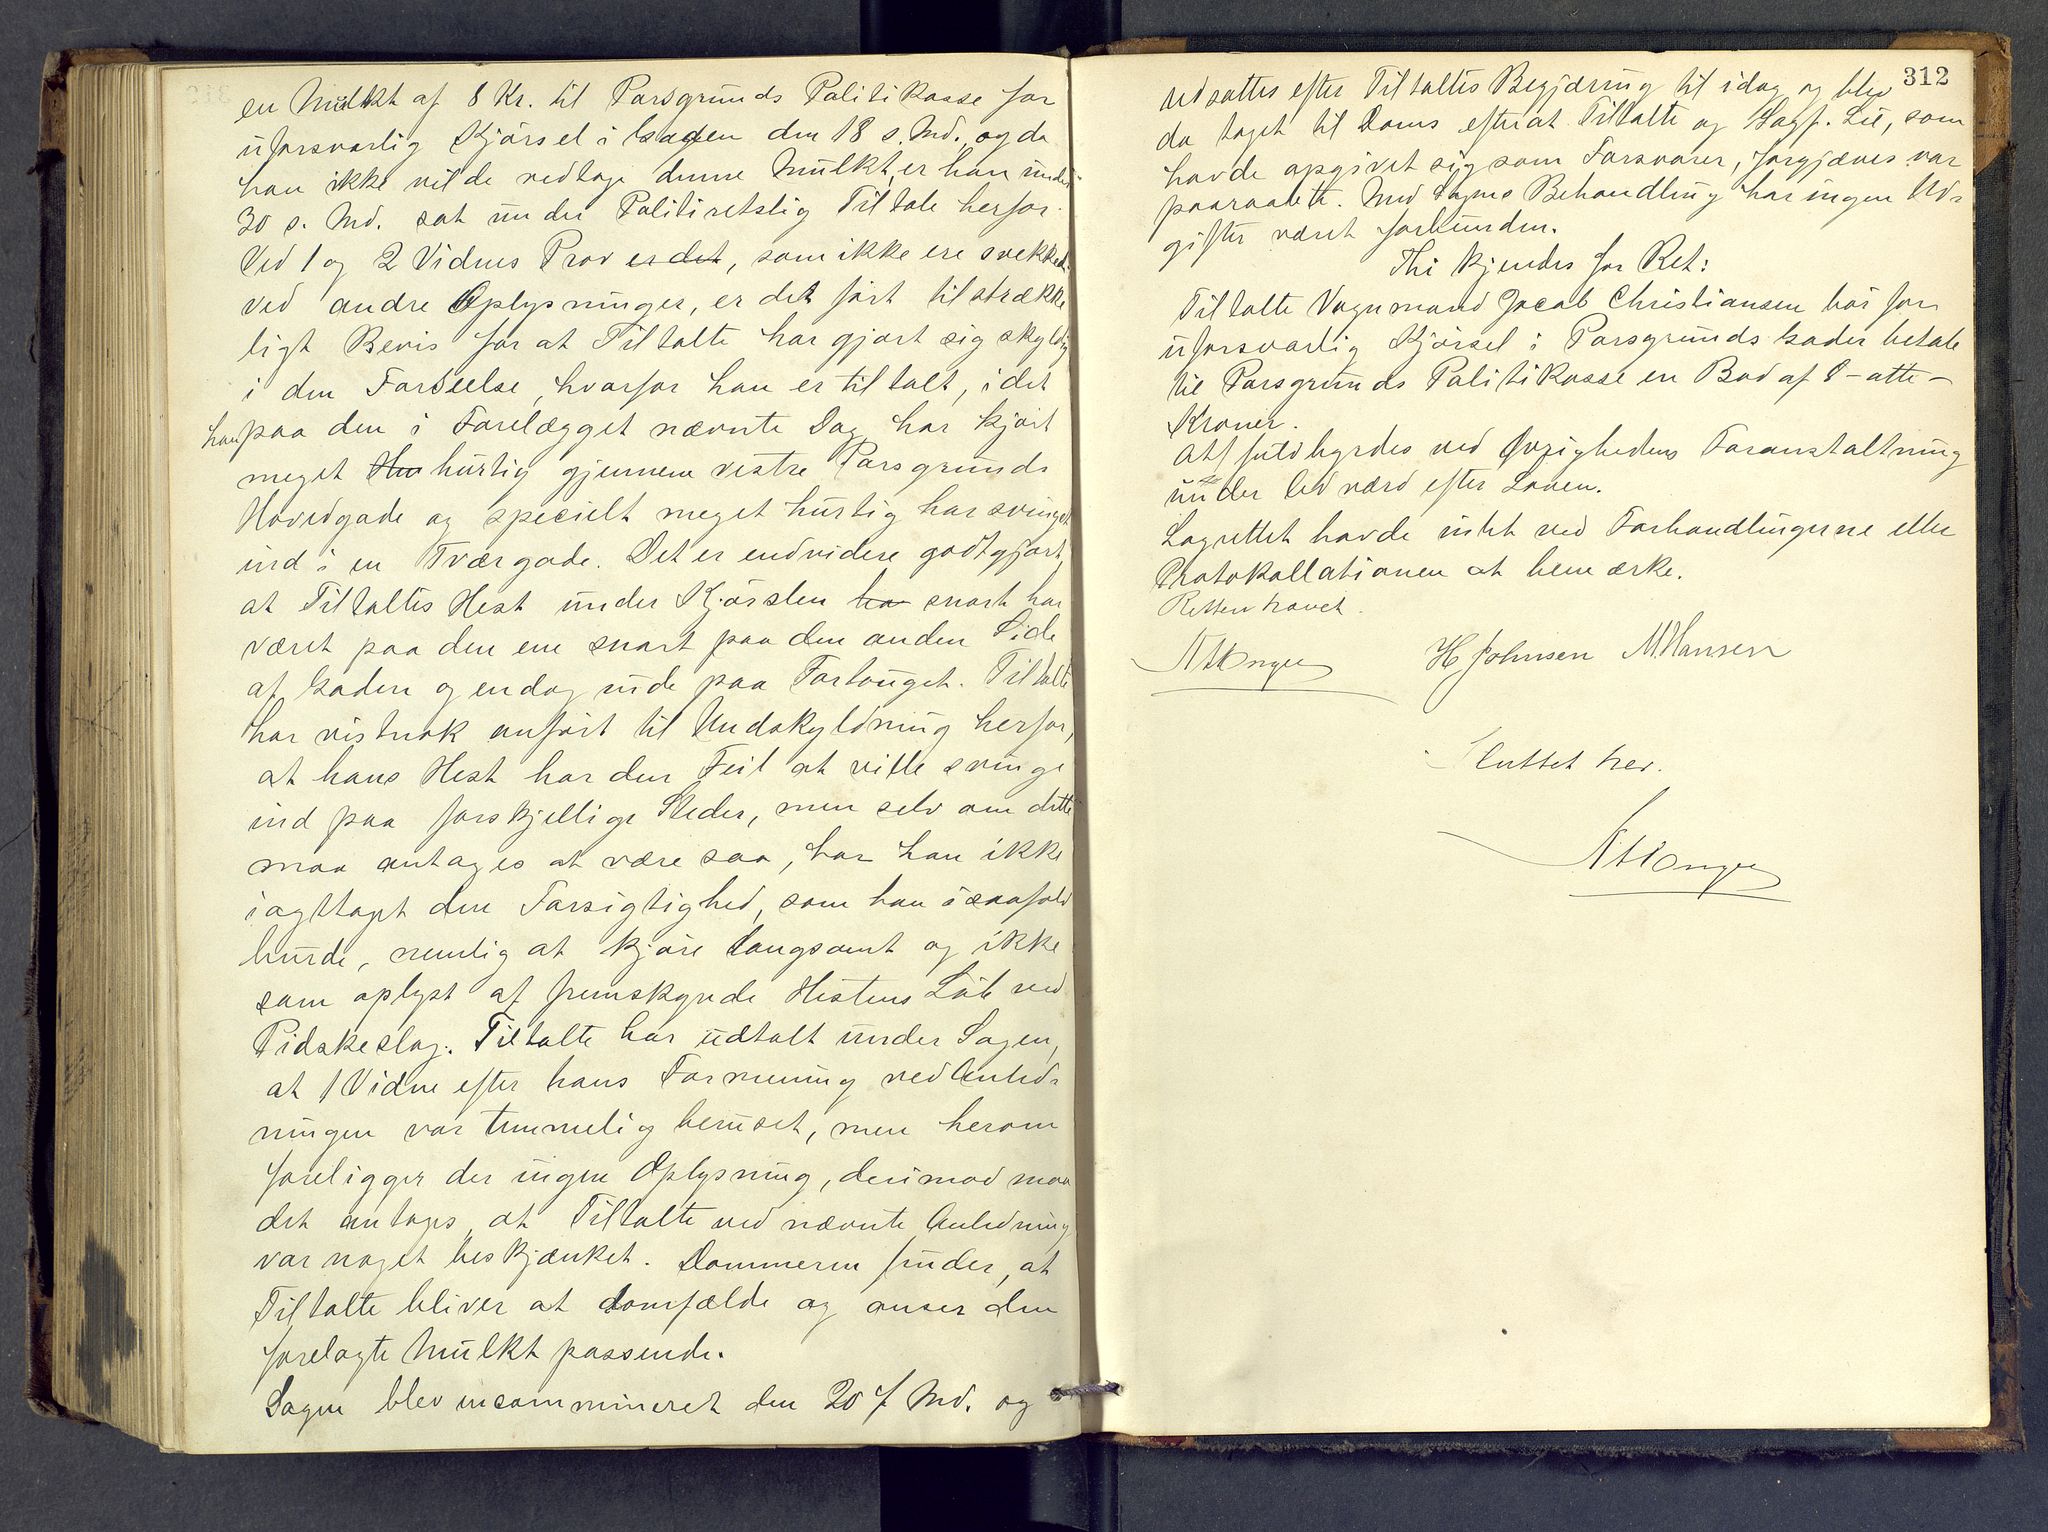 en Mulkt af 8 Kr. til Porsgrunds Politikasse for
uforsvarlig Kjørsel i Gaden den 18 s. Md., og da
han ikke vilde vedtage denne Mulkt, er han under
30 s. Md. sat under Politiretslig Tiltale herfor.
Ved 1 og 2 Vidnes Prov er det, som ikke ere svekkede
ved andre Oplysninger, er det ført tilstrække
ligt Bevis for at Tiltalte har gjort sig skyldig
i den Forseelse, hvorfor han er tiltalt, idet
han paa den i Forelægget nævnte Dag har kjørt
meget Hu hurtig gjennem vestre Porsgrunds
Hovedgade og specielt meget hurtig har svinget
ind i en Tværgade. Det er endvidere godtgjort,
at Tiltaltes Hest under Kjørslen ha snart har
været paa den ene snart paa den anden Side
af Gaden og endog inde paa Fortouget. Tiltalte
har vistnok anført til Undskyldning herfor,
at hans Hest har den Feil at ville svinge
ind paa forskjellige Steder, men selv om dette
maa antages at være saa, har han ikke
iagttaget den Forsigtighed, som han isaafald
burde, nemlig at kjøre langsomt og ikke
som oplyst at fremskynde Hestens Løb ved
Pidskeslag. Tiltalte har udtalt under Sagen,
at 1 Vidne efter hans Formening ved Anled-
ningen var temmelig beruset, men herom
foreligger der ingen Oplysning, derimod maa
det antages, at Tiltalte ved nævnte Anledning
var noget beskjænket. Dommeren finder, at
Tiltalte bliver at domfælde og anser den
forelagte Mulkt passende.
Sagen blev incammineret den 20 f. Md. og
312
udsattes efter Tiltaltes Begjæring til idag og blev
da taget til Doms efterat Tiltalte og Sagf. Lie, som
havde opgivet sig som Forsvarer, forgjæves var
paaraabt. Med Sagens Behandling har ingen Ud-
gifter været forbunden.
Thi kjendes for Ret:
Tiltalte Vognmand Jacob Christiansen bør for
uforsvarlig Kjørsel i Porsgrunds Gader betale
til Porsgrunds Politikasse en Bod af 8 – otte –
Kroner.
At fuldbyrdes ved Øvrighedens Foranstaltning
under Adfærd efter Loven.
Lagrettet havde intet ved Forhandlingerne eller
Protokollationen at bemærke.
Retten hævet.
H Johnsen M. Hansen
Sluttet her.